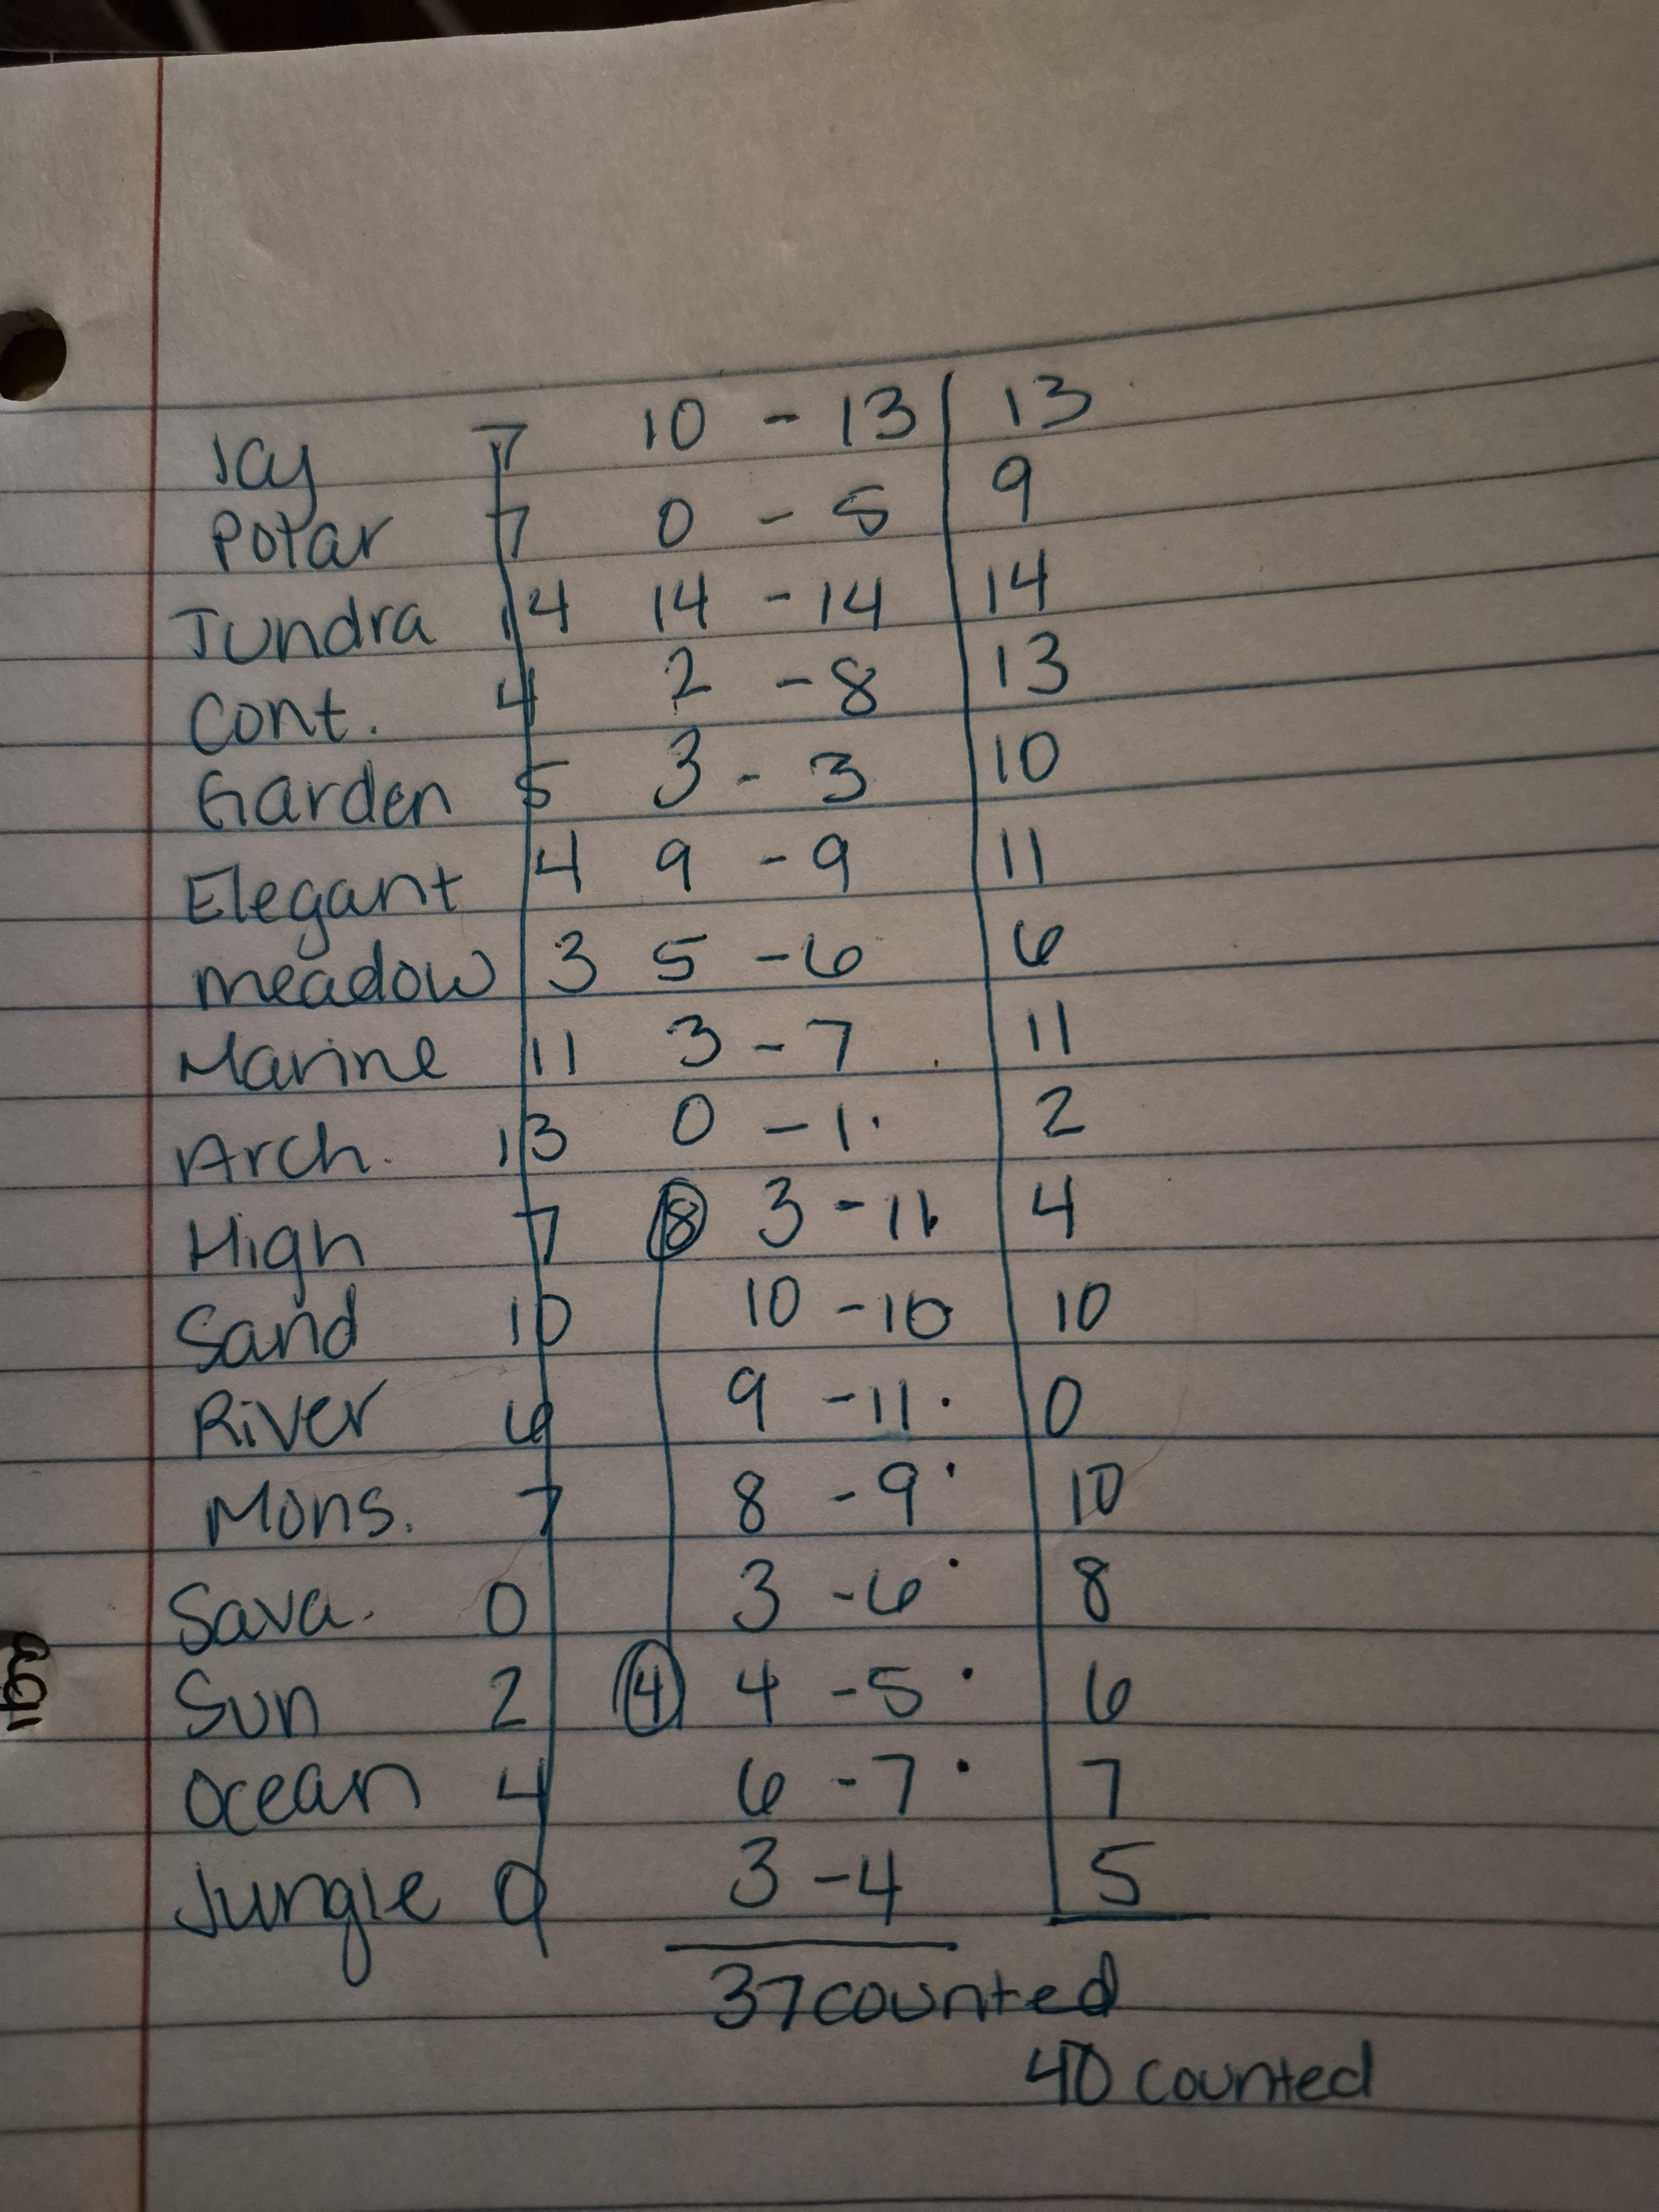 Icy 7 10 - 13 13
Polar 7 0 - 5 9
Tundra 14 14 - 14 14
Cont. 4 2 - 8 13
Garden 5 3 - 3 10
Elegant 4 9 - 9 11
meadow 3 5 - 6 6
Marine 11 3 - 7 11
Arch. 13 0 - 1 2
High 7 8 3 - 11 4
Sand 10 10 - 10 10
River 6 9 - 11 0
Mons. 7 8 - 9 10
Sava. 0 3 - 6 8
Sun 2 4 4 - 5 6
Ocean 4 6 - 7 7
Jungle 0 3 - 4 5
37 counted
40 counted